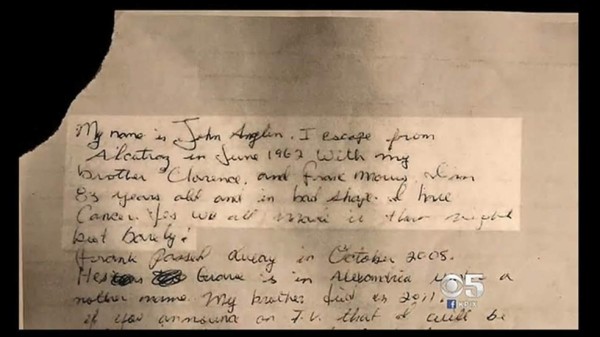 My name is John Anglin. I escape from
Alcatraz in June 1962 With my
brother Clarence, and Frank Morris. I'm
83 years old and in bad shape. I have
Cancer. Yes we all made it that night
but barely!
Frank Passed away in October 2008.
His Grave is in Alexandria under a
nother name. My brother died in 2011.
if you announce on T.V. that I will be
5